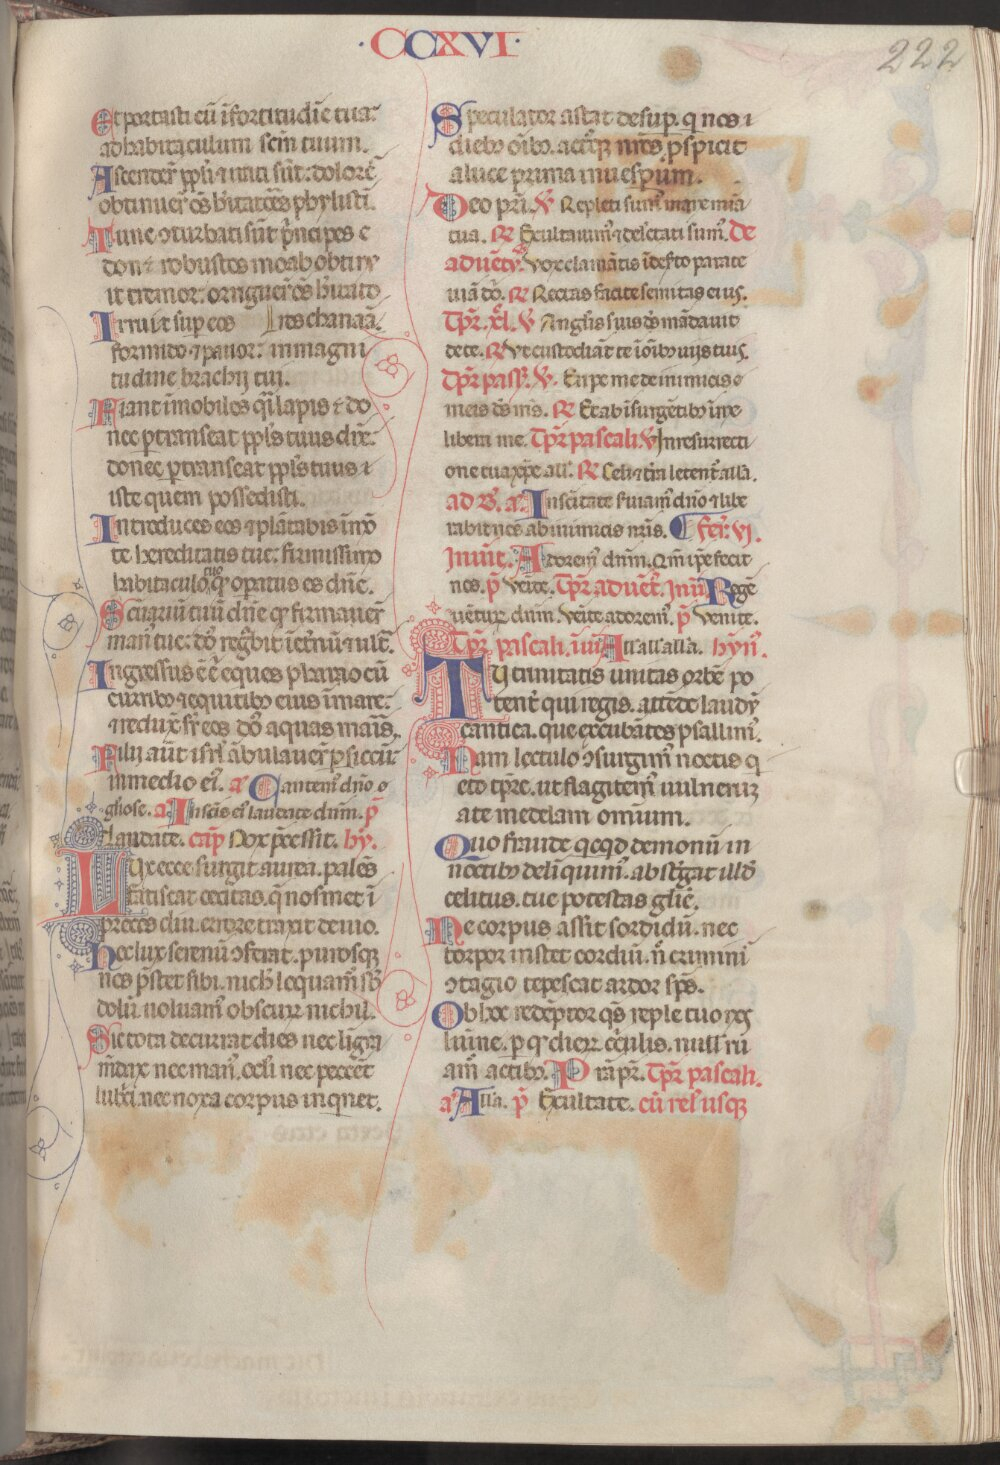 ·CCXVI·
222
Et portasti eū ī fortitudīe tua:
ad habitaculum scm̄ tuum.
Ascenderūt ppl'i ⁊ irati sūt: dolorē
obtinuer̄ oēs hītatōēs phylisti.
Tunc ↄturbati sūt p̄ncipes e
dom ⁊ robustos moab obtinu
it tremor: origuer̄ oēs hītato
Irruit sup eos res chanaā.
formido ⁊ pauor: in magni
tudine brachij tui.
Fiant īmobiles q̄i lapis ⁊ do
nec ptranseat ppl's tuus dn̄e:
donec ptranseat ppl's tuus i
iste quem possedisti.
Introduces eos ⁊ plātabis ī mō
te hereditatis tue: firmissimo
habitaculo tuo qḋ opatus es dn̄e.
Sc̄uariū tuū dn̄e qḋ firmauer̄
man' tue: dn̄s regbit ī et̄nū ⁊ ult̄.
Ingressus ē eques pharao cū
currib; ⁊ equitib; eius ī mare:
⁊ redux̄ sr̄ eos dn̄s aquas maris.
Filij aūt isrl' ābulauer̄ p siccū
in medio ei'. a' Cantem' dn̄o
gl'iose. a' In scīs ei' laudate dnm̄. p̄
laudate. cap̄ Nox p̄cessit. hy.
Lux ecce surgit aurea. palēs
fatiscat cecitas. q̄ nosmet ī
preceps diu. errore traxit deuio.
Hec lux serenū ↄferat. purosq;
nos p̄stet sibi. nich' loquam' sb
dolū. uoluam' obscurū nichil.
Sic tota decurrat dies nec ligua
mēdax nec man'. oc'li nec peccēt
lubrici. nec noxa corpus inqnet.
Speculator astat desup. q nos
dieb; oīb;. actusq; nr̄os pspicit
a luce prima in uesperum.
Deo pr̄i. ℣ Repleti sum' mane mīa
tua. ℞ Exultauim' ⁊ delctati sum'. De
aduētu. ℣ Vox clamātis ī defto parate
uiā dn̄i. ℞ Rectas facite semitas eius.
Tpr̄. xl'. ℣ Angl'is suis ds mādauit
de te. ℞ Vt custodiāt te ī oīb; uijs tuis.
Tpr̄ pass'. ℣. Eripe me de inimicis
meis ds m's. ℞ Et ab īsurgētib; ī me
libera me. Tpr̄ pascali. ℣ In resurrecti
one tua xp̄e all'a. ℞ Celi ⁊ tr̄a letent' all'a.
ad B. a' In sc̄itate suiam' dn̄o ⁊ libe
rabit nos ab inimicis nr̄is. Fer̄. vi.
Inuit'. Adorem' dnm̄. Qm̄ ip̄e fecit
nos. p̄ Venite. Tpr̄ aduēt'. Inuit' Regē
uētur dnm̄. Venite adorem'. p̄ Venite.
Tpr̄ pascali. inuit' All'a all'a all'a. hyn̄.
Tu trinitatis unitas orbē po
tent' qui regis. attēde laudū
cantica. que excubātes psallim'.
Nam lectulo ↄsurgim' noctis q
eto tpr̄e. ut flagitem' uulnerū
a te medelam omium.
Quo fraude qcqd demonū in
noctib; deliquim'. abst'gat illd
celitus. tue potestas glīe.
Ne corpus assit sordidū. nec
torpor instet cordiū. n̄ criminī
ↄtagio tepescat ardor sps.
Ob hoc redēptor qs reple tuo nos
lumīne. p qd dierū circulis. nullis ru
am' actib;. Prā pr̄. Tpr̄ pascali.
a' All'a. p̄ Exultate. cū rel' usq;